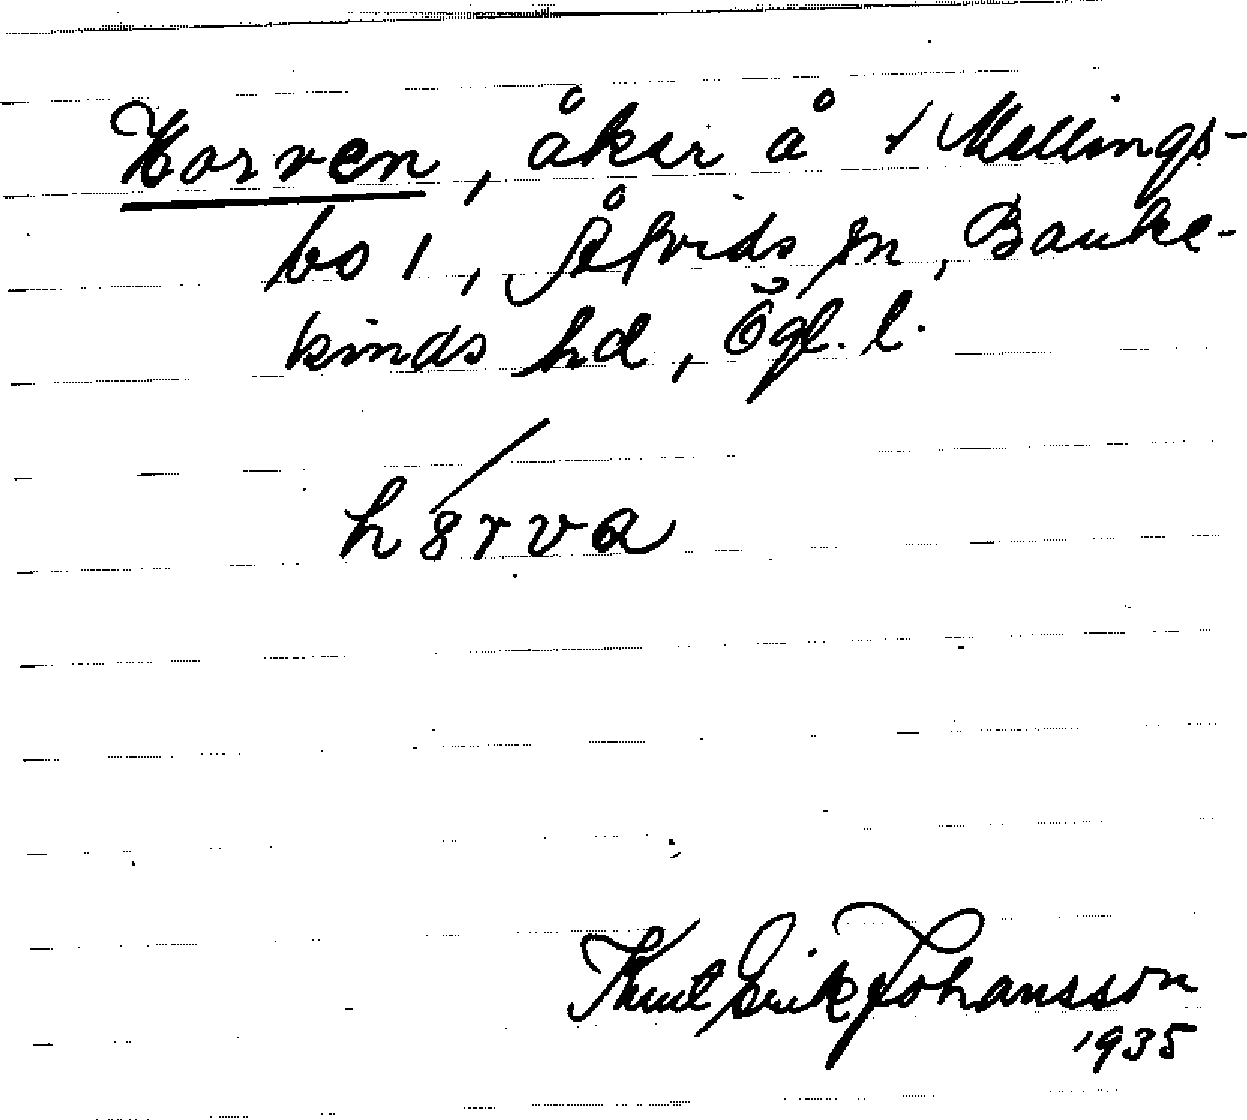 Horven, åker å √ Mellings-
bo 1, Åtvids sn, Banke-
kinds hd, Ögl. l.
h8́rva
Knut Erik Johansson
1935